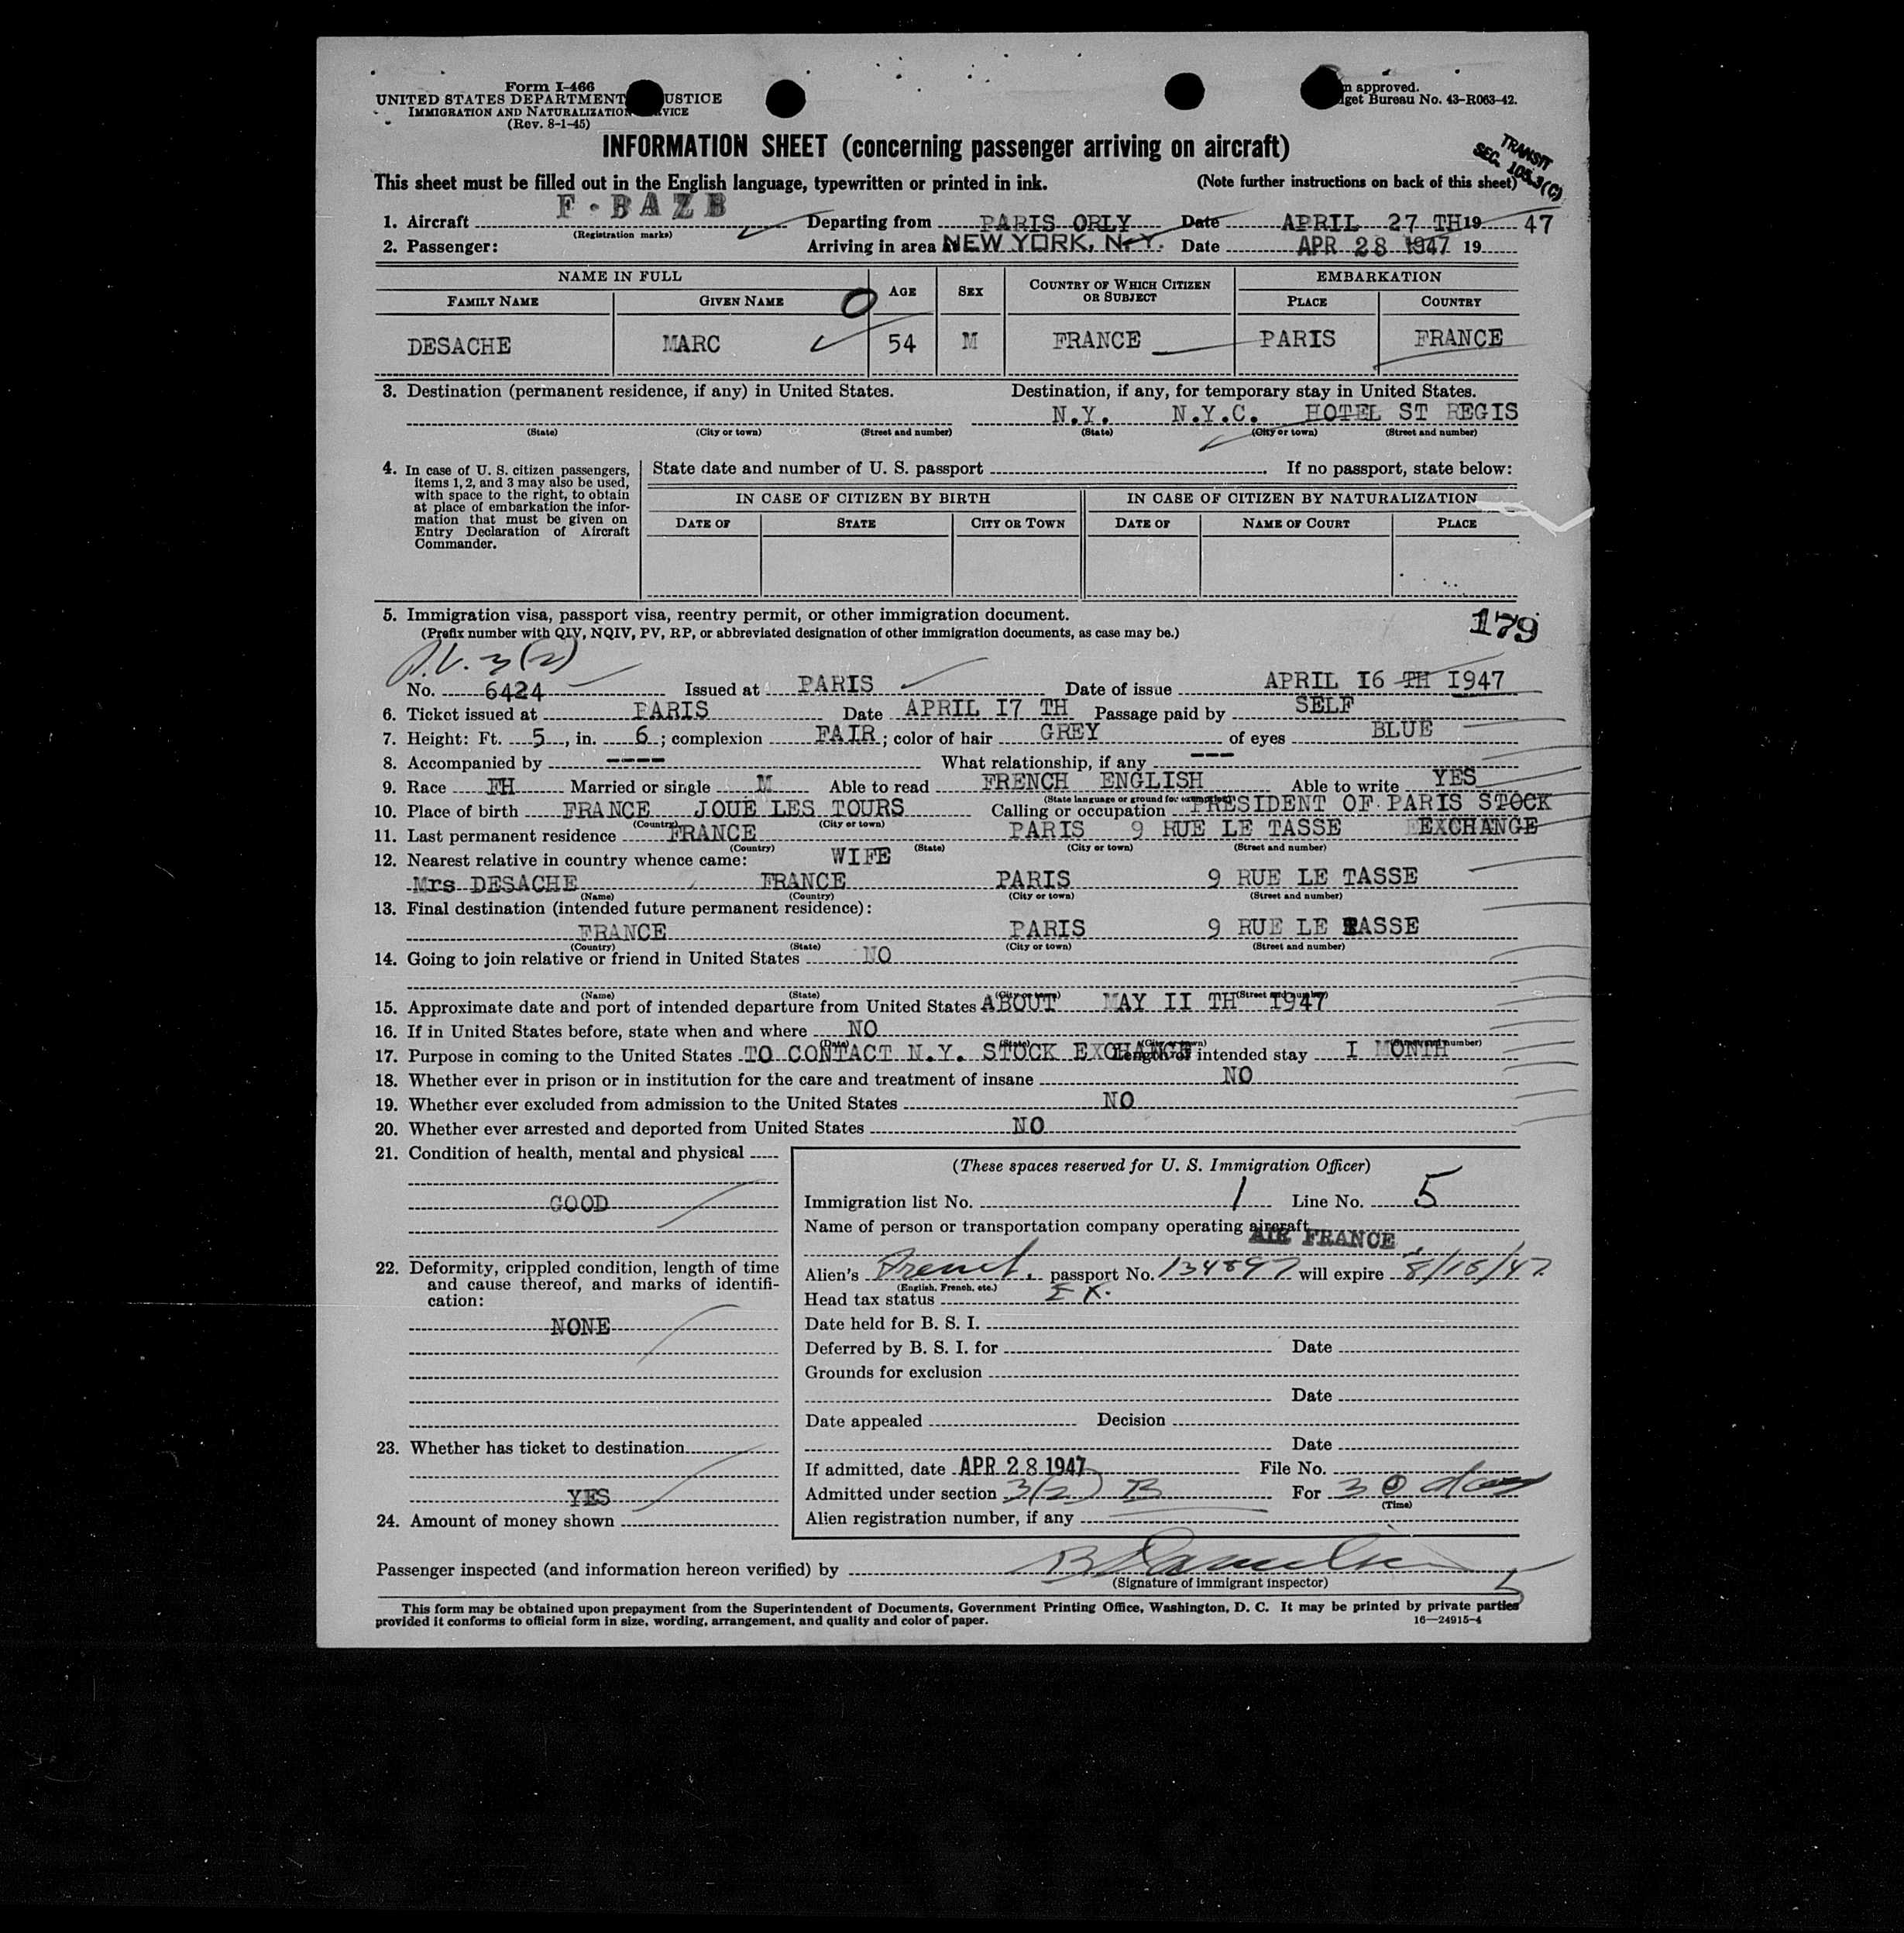 Form I-466
UNITED STATES DEPARTMENT USTICE
IMMIGRATION AND NATURALIZATION VICE
(Rev. 8-1-45)
m approved.
get Bureau No. 43-R063-42.
INFORMATION SHEET (concerning passenger arriving on aircraft)
TRANSIT
SEC. 105.3(C)
This sheet must be filled out in the English language, typewritten or printed in ink. (Note further instructions on back of this sheet)
1. Aircraft F-BAZB Departing from PARIS ORLY Date APRIL 27 TH 19 47
(Registration marks)
2. Passenger: Arriving in area NEW YORK, N.Y. Date APR 28 1947 19
NAME IN FULL AGE SEX COUNTRY OF WHICH CITIZEN OR SUBJECT EMBARKATION
FAMILY NAME GIVEN NAME PLACE COUNTRY
DESACHE MARC 54 M FRANCE PARIS FRANCE
3. Destination (permanent residence, if any) in United States. Destination, if any, for temporary stay in United States.
N.Y. N.Y.C. HOTEL ST REGIS
(State) (City or town) (Street and number) (State) (City or town) (Street and number)
4. In case of U. S. citizen passengers,
items 1, 2, and 3 may also be used,
with space to the right, to obtain
at place of embarkation the infor-
mation that must be given on
Entry Declaration of Aircraft
Commander.
State date and number of U. S. passport . If no passport, state below:
IN CASE OF CITIZEN BY BIRTH IN CASE OF CITIZEN BY NATURALIZATION
DATE OF STATE CITY OR TOWN DATE OF NAME OF COURT PLACE
5. Immigration visa, passport visa, reentry permit, or other immigration document.
179
(Prefix number with QIV, NQIV, PV, RP, or abbreviated designation of other immigration documents, as case may be.)
P.V. 3(2)
No. 6424 Issued at PARIS Date of issue APRIL I6 TH I947
6. Ticket issued at PARIS Date APRIL I7 TH Passage paid by SELF
7. Height: Ft. 5, in. 6; complexion FAIR; color of hair GREY of eyes BLUE
8. Accompanied by ---- What relationship, if any ---
9. Race FH Married or single M Able to read FRENCH ENGLISH Able to write YES
(State language or ground for exemption)
10. Place of birth FRANCE JOUE LES TOURS Calling or occupation PRESIDENT OF PARIS STOCK
(Country) (City or town)
11. Last permanent residence FRANCE PARIS 9 RUE LE TASSE EXCHANGE
(Country) (State) (City or town) (Street and number)
12. Nearest relative in country whence came: WIFE
Mrs DESACHE FRANCE PARIS 9 RUE LE TASSE
(Name) (Country) (City or town) (Street and number)
13. Final destination (intended future permanent residence):
FRANCE PARIS 9 RUE LE TASSE
(Country) (State) (City or town) (Street and number)
14. Going to join relative or friend in United States NO
(Name) (State) (City or town) (Street and number)
15. Approximate date and port of intended departure from United States ABOUT MAY II TH I947
16. If in United States before, state when and where NO
(Date) (State) (City or town) (Street and number)
17. Purpose in coming to the United States TO CONTACT N.Y. STOCK EXCHANGE Length of intended stay I MONTH
18. Whether ever in prison or in institution for the care and treatment of insane NO
19. Whether ever excluded from admission to the United States NO
20. Whether ever arrested and deported from United States NO
21. Condition of health, mental and physical
GOOD
22. Deformity, crippled condition, length of time
and cause thereof, and marks of identifi-
cation:
NONE
23. Whether has ticket to destination
YES
24. Amount of money shown
(These spaces reserved for U. S. Immigration Officer)
Immigration list No. 1 Line No. 5
Name of person or transportation company operating aircraft
AIR FRANCE
Alien's French passport No. 134897 will expire 8/18/47
(English, French, etc.)
Head tax status EX.
Date held for B. S. I.
Deferred by B. S. I. for Date
Grounds for exclusion
Date
Date appealed Decision
Date
If admitted, date APR 28 1947 File No.
Admitted under section 3(2) B For 30 days
(Time)
Alien registration number, if any
Passenger inspected (and information hereon verified) by
(Signature of immigrant inspector)
5
This form may be obtained upon prepayment from the Superintendent of Documents, Government Printing Office, Washington, D. C. It may be printed by private parties
provided it conforms to official form in size, wording, arrangement, and quality and color of paper. 16—24915-4